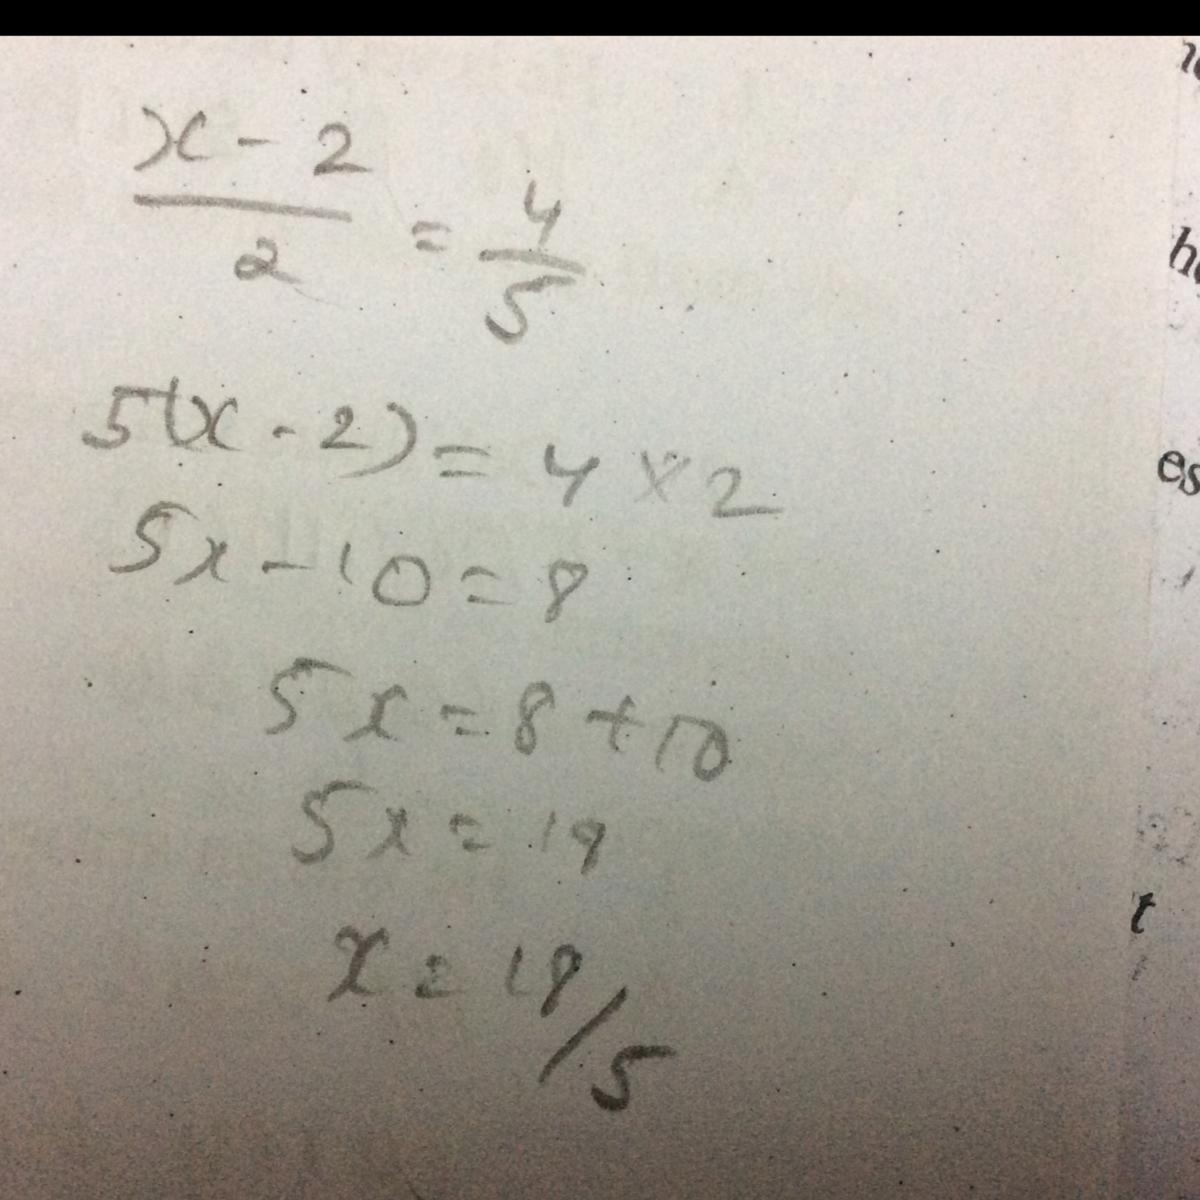 x - 2 / 2 = 4 / 5
5(x - 2) = 4 × 2
5x - 10 = 8
5x = 8 + 10
5x = 19
x = 18/5
es
t